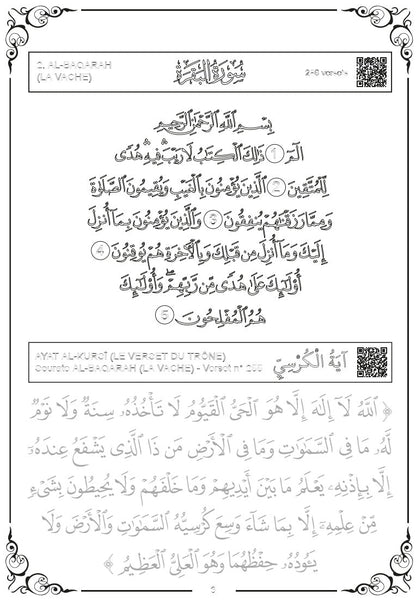 2. AL-BAQARAH
(LA VACHE)
سُورَةُ الْبَقَرَةِ
286 versets
بِسْمِ اللَّهِ الرَّحْمَٰنِ الرَّحِيمِ
الٓمٓ ① ذَٰلِكَ الْكِتَٰبُ لَا رَيْبَ ۛ فِيهِ ۛ هُدًى
لِّلْمُتَّقِينَ ② الَّذِينَ يُؤْمِنُونَ بِالْغَيْبِ وَيُقِيمُونَ الصَّلَوٰةَ
وَمِمَّا رَزَقْنَٰهُمْ يُنفِقُونَ ③ وَالَّذِينَ يُؤْمِنُونَ بِمَا أُنزِلَ
إِلَيْكَ وَمَا أُنزِلَ مِن قَبْلِكَ وَبِالْآخِرَةِ هُمْ يُوقِنُونَ ④
أُولَٰئِكَ عَلَىٰ هُدًى مِّن رَّبِّهِمْ ۖ وَأُولَٰئِكَ
هُمُ الْمُفْلِحُونَ ⑤
AYAT AL-KURSÎ (LE VERSET DU TRÔNE)
Sourate AL-BAQARAH (LA VACHE) - Verset n° 255
آيَةُ الْكُرْسِيِّ
﴿ اللَّهُ لَآ إِلَٰهَ إِلَّا هُوَ الْحَيُّ الْقَيُّومُ لَا تَأْخُذُهُۥ سِنَةٌ وَلَا نَوْمٌ
لَّهُۥ مَا فِي السَّمَٰوَٰتِ وَمَا فِي الْأَرْضِ مَن ذَا الَّذِي يَشْفَعُ عِندَهُۥٓ
إِلَّا بِإِذْنِهِۦ يَعْلَمُ مَا بَيْنَ أَيْدِيهِمْ وَمَا خَلْفَهُمْ وَلَا يُحِيطُونَ بِشَيْءٍ
مِّنْ عِلْمِهِۦٓ إِلَّا بِمَا شَآءَ وَسِعَ كُرْسِيُّهُ السَّمَٰوَٰتِ وَالْأَرْضَ وَلَا
يَـُٔودُهُۥ حِفْظُهُمَا وَهُوَ الْعَلِيُّ الْعَظِيمُ ﴾
3